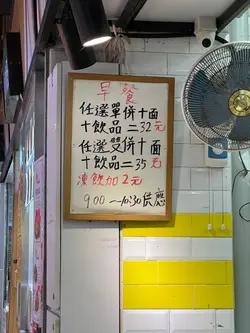 早餐
任選單併十面
十飲品二32元
任選雙併十面
十飲品二35元
凍飲加2元
9:00~10:30供應